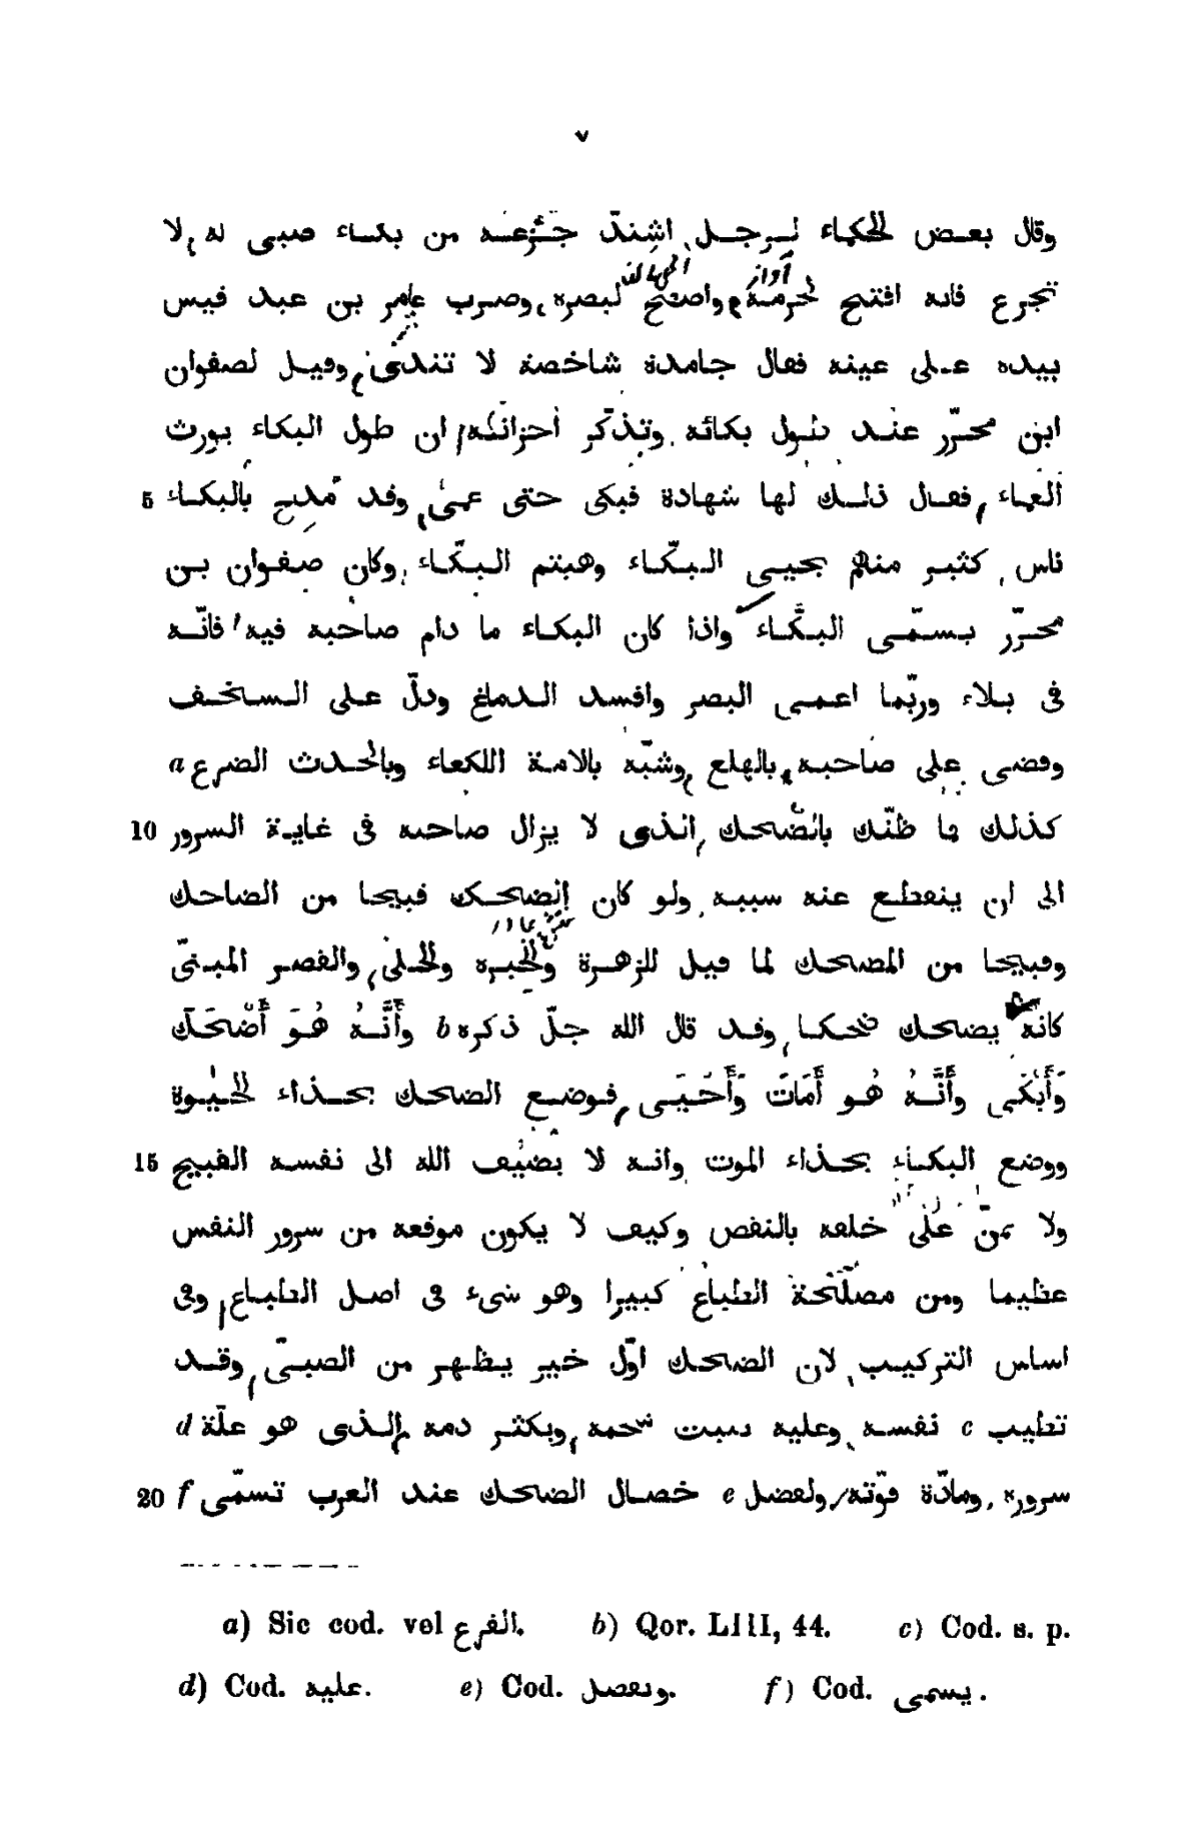 ٧
وقال بعض للحكماء لرجل اشتدّ جزعه من بكاء صبى له لا
تجزع فانه افتح لجرمه واصح لبصره وضرب عامر بن عبد قيس
بيده على عينه فقال جامدة شاخصة لا تندى وقيل لصفوان
ابن محرّر عند طول بكائه وتذكّر أحزانه ان طول البكاء يورث
5 العماء فقال ذلك لها شهادة فبكى حتى عمى وقد مدح بالبكاء
ناس كثير منهم يحيى البكّاء وهيثم البكّاء وكان صفوان بن
محرّر يسمّى البكّاء واذا كان البكاء ما دام صاحبه فيه فانّه
فى بلاء وربّما اعمى البصر وافسد الدماغ ودلّ على السخف
وقضى على صاحبه بالهلع وشبّه بالامة اللكعاء وبالحدث الضرع a
10 كذلك ما ظنّك بالضّحك الذى لا يزال صاحبه فى غاية السرور
الى ان ينقطع عنه سببه ولو كان الضحك قبيحا من الضاحك
وقبيحا من المضحك لما قيل للزهرة والحبره والحلى والقصر المبنىّ
كانه يضحك ضحكا وقد قال الله جلّ ذكره b وَأَنَّهُ هُوَ أَضْحَكَ
وَأَبْكَى وأَنَّهُ هُو أَمَاتَ وَأَحْيَى فوضع الضحك بحذاء لحيوة
15 ووضع البكاء بحذاء الموت وانه لا يضيف الله الى نفسه القبيح
ولا يمنّ على خلقه بالنقص وكيف لا يكون موقعه من سرور النفس
عظيما ومن مصلحة الطباع كبيرا وهو شىء فى اصل الطباع وفى
اساس التركيب لان الضحك اوّل خير يظهر من الصبىّ وقد
تطيب c نفسه وعليه ينبت شحمه ويكثر دمه الذى هو علّة d
20 سروره ومادّة قوّته ولفضل e خصال الضحك عند العرب تسمّى f
a) Sic cod. vel الفرع. b) Qor. LIII, 44. c) Cod. s. p.
d) Cod. عليه. e) Cod. وبفصل. f) Cod. يسمى.